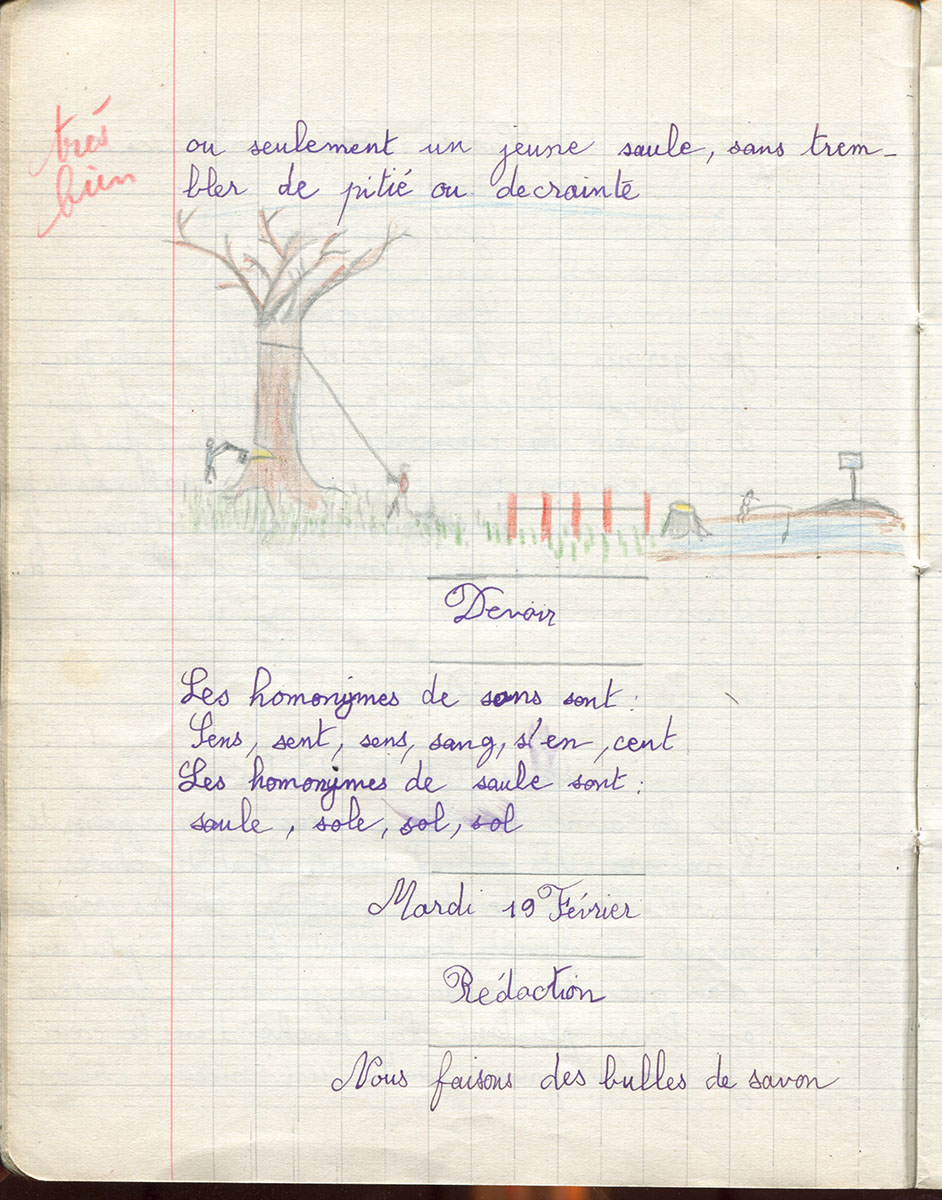 très
bien
ou seulement un jeune saule, sans trem-
bler de pitié ou decrainte
Devoir
Les homonymes de sans sont :
Sens, sent, sens, sang, s'en, cent
Les homonymes de saule sont :
saule, sole, sol, sol
Mardi 19 Février
Rédaction
Nous faisons des bulles de savon